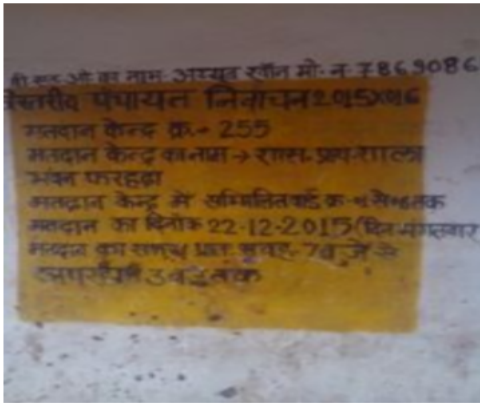 बी.एल.ओ का नाम- अय्यूब खॉन मो. न. 7869086
स्तरीय पंचायत निर्वाचन 2015X016
मतदान केन्द्र क्र.- 255
मतदान केन्द्र का नाम → शास. प्राय. शाला
फरहदा
मतदान केन्द्र में सम्मिलित वार्ड क्र. से तक
मतदान का दिनांक 22-12-2015 (दिन मंगलवार
मतदान का समय प्रातः 7 बजे से
3 बजे तक